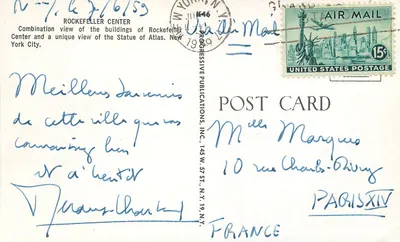 N-Y, le 7/6/59
ROCKEFELLER CENTER
Combination view of the buildings of Rockefeller
Center and a unique view of the Statue of Atlas. New
York City.
Meilleurs souvenirs
de cette ville que vous
connaissez bien
et à bientôt
PROGRESSIVE PUBLICATIONS, INC., 148 W. 57 ST., N.Y. 19, N.Y.
NEW YORK, N.Y.
1959
Via Air Mail
AIR MAIL
15¢
UNITED STATES POSTAGE
POST CARD
Marques
10 rue Charles-Divry
PARIS XIV
FRANCE